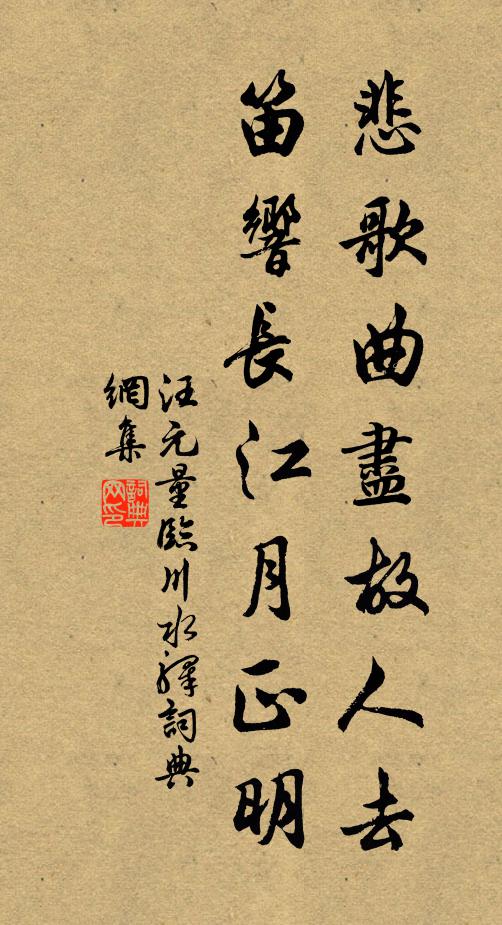 悲歌曲盡故人去
笛響長江月正明
汪元量臨川水驛詞典
網集
詞典
网印